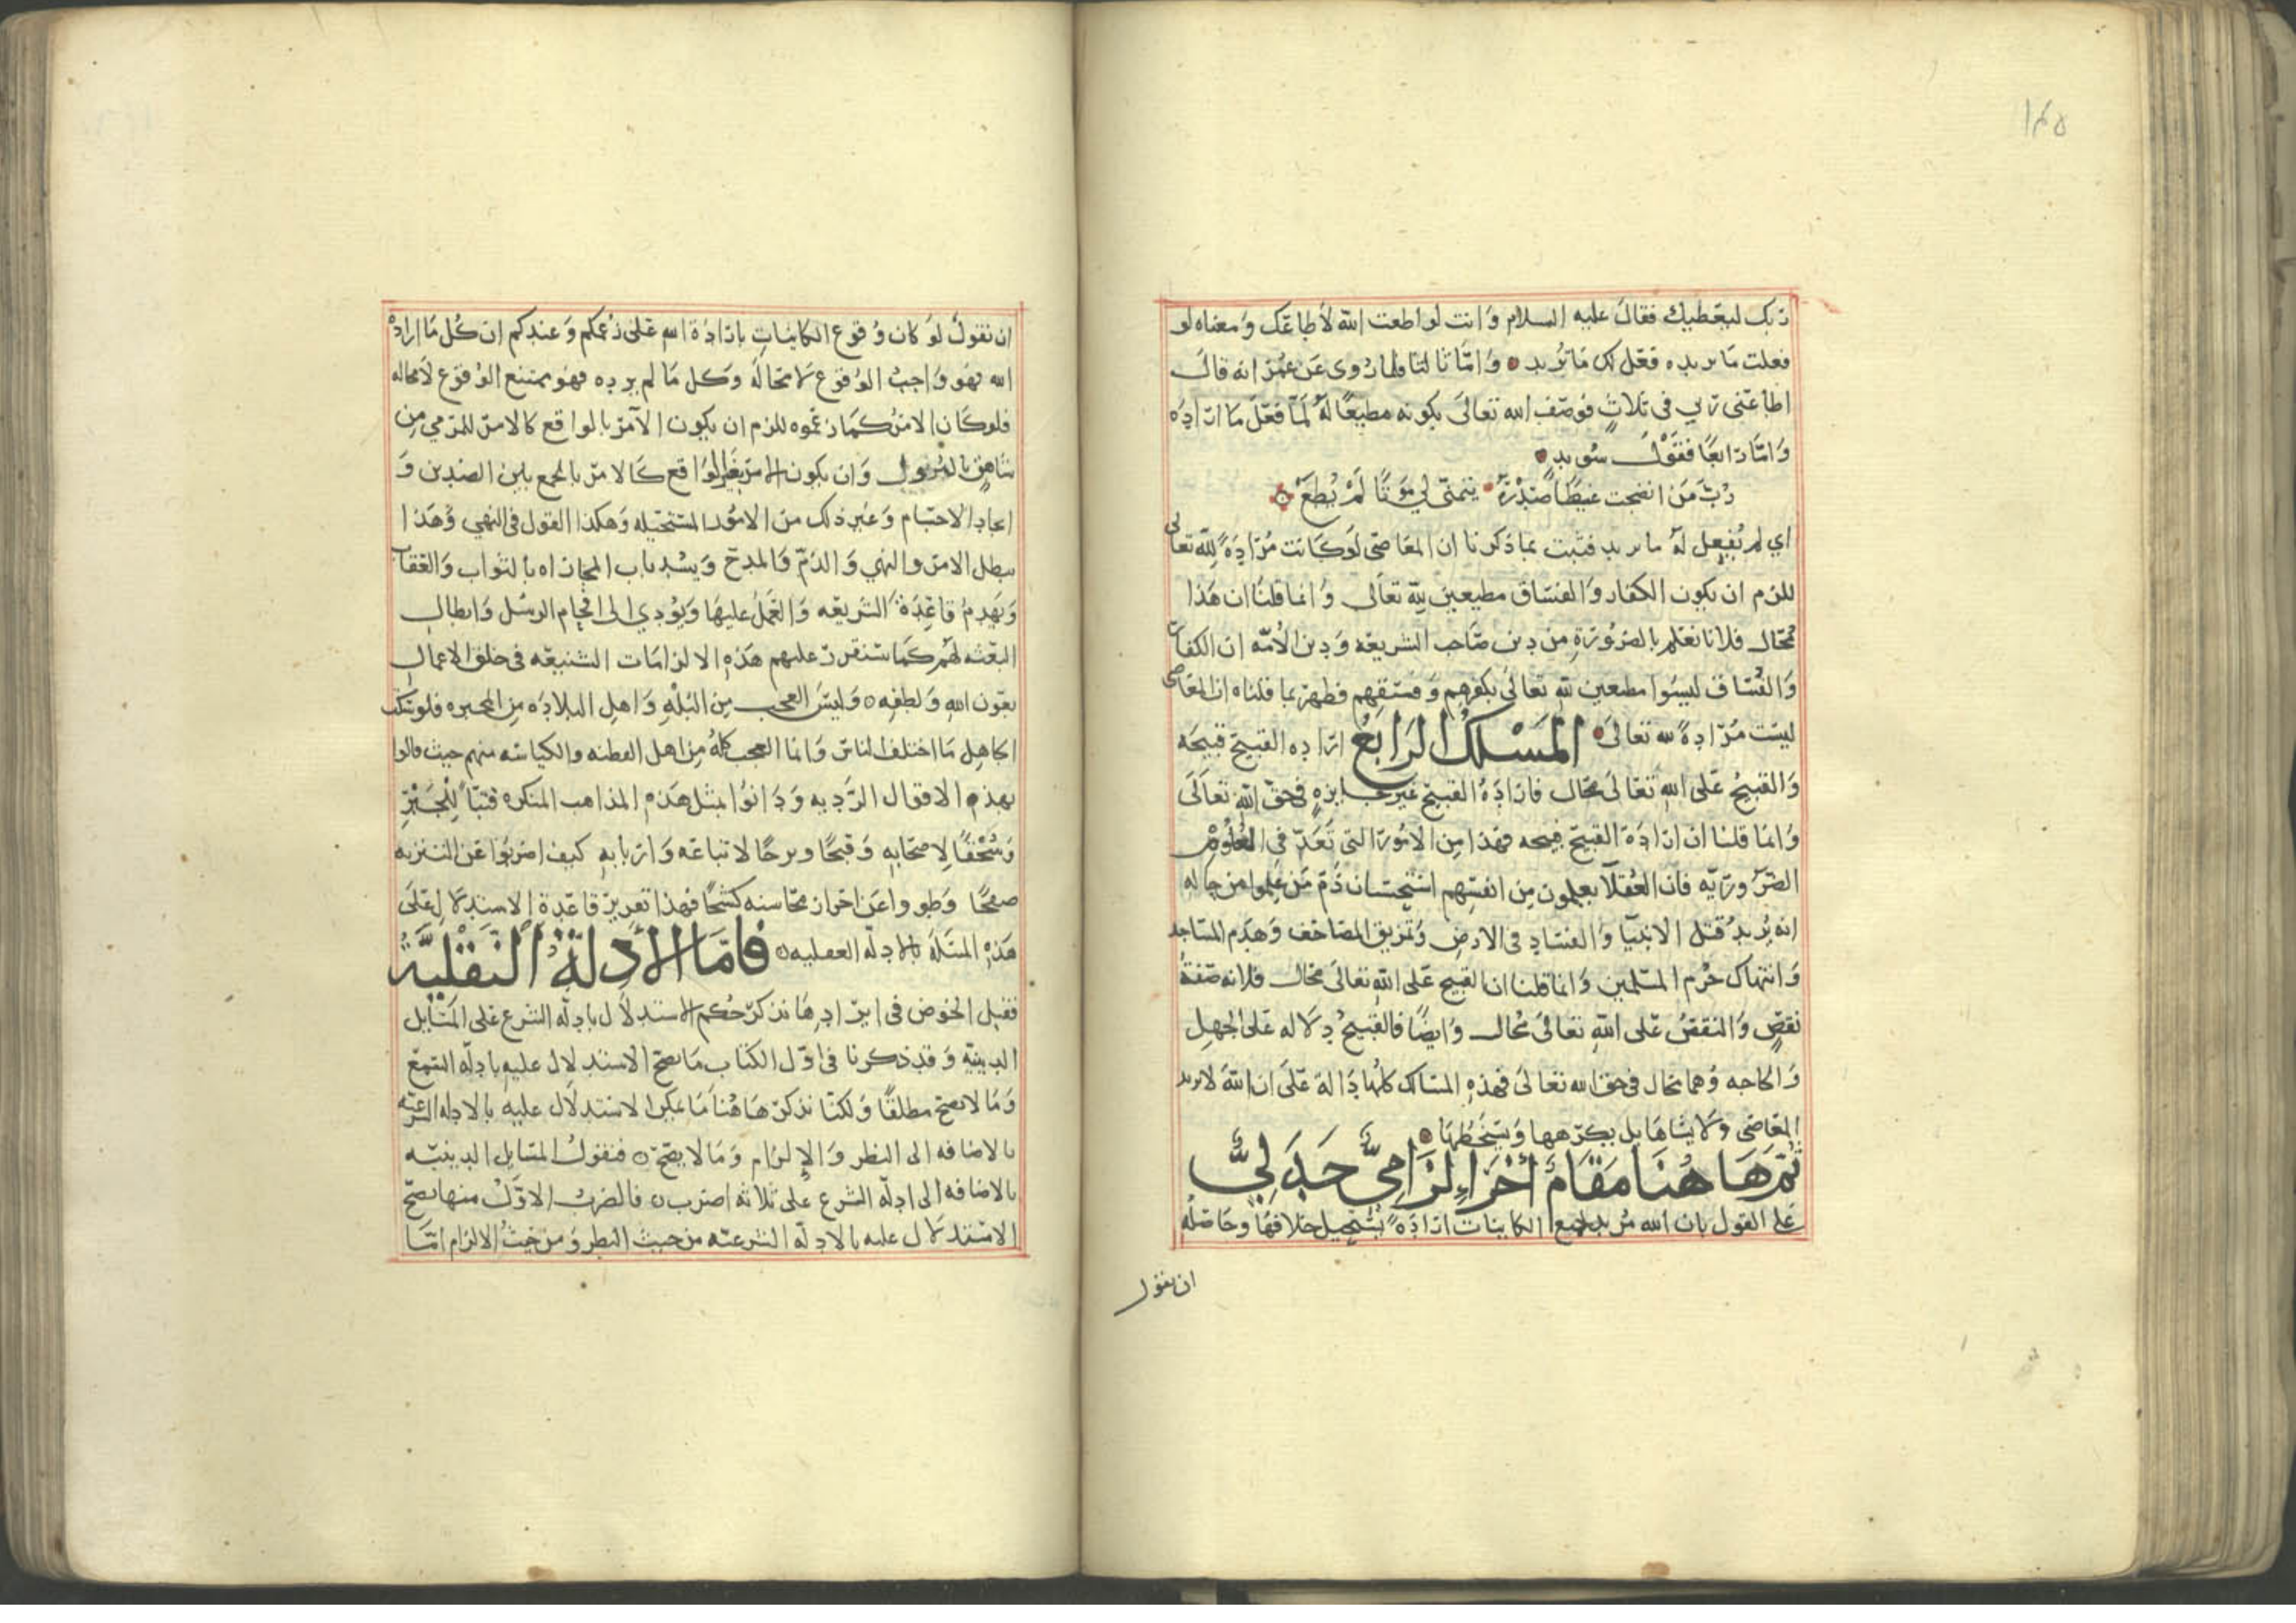 ١٤٥
ربك ليعطيك فقال عليه السلام وانت لو اطعت الله لأطاعك ومعناه لو
فعلت ما يريده فعل لك ما تريد واما ثالثا فلما روى عن عمر انه قال
اطاعنى ربي في ثلاث فوصف الله تعالى بكونه مطيعًا له لما فعل ما اراده
واما رابعًا فقول سويد
رب من انضجت غيظًا صدره يتمنى لي موتًا لم يطع
اي لم يفعل له ما يريد فثبت بما ذكرنا ان المعاصى لو كانت مرادة لله تعالى
للزم ان يكون الكفار والفساق مطيعين لله تعالى وانما قلنا ان هذا
محال فلانا نعلم بالضرورة من دين صاحب الشريعه ودين الأمه ان الكفار
والفساق ليسوا مطيعين لله تعالى بكفرهم وفسقهم فظهر بما قلناه ان المعاصى
ليست مرادة لله تعالى المسلك الرابع ارادة القبيح قبيحه
والقبيح على الله تعالى محال فارادة القبيح غير جايزه في حق الله تعالى
وانما قلنا ان ارادة القبيح قبيحه فهذا من الامور التى تعد في العلوم
الضروريه فان العقلآ يعلمون من انفسهم استحسان ذم من علموا من حاله
انه يريد قتل الانبيآ والفساد فى الارض وتمزيق المصاحف وهدم المساجد
وانتهاك حرم المسلمين وانما قلنا ان القبيح على الله تعالى محال فلانه صفة
نقص والنقص على الله تعالى محال وايضًا فالقبيح دلاله على الجهل
والحاجه وهما محال في حق الله تعالى فهذه المسالك كلها دالة على ان الله لا يريد
المعاصى ولا يشاها بل يكرهها ويسخطها
ثم ها هنا مقام أخر إلزامي جدلي
على القول بان الله مريد لجميع الكاينات ارادة يستحيل خلافها وحاصله
ان نقول
ان نقول لو كان وقوع الكاينات بارادة الله على زعمكم وعندكم ان كل ما اراده
الله فهو واجب الوقوع لا محاله وكل ما لم يرده فهو ممتنع الوقوع لا محاله
فلو كان الامر كما زعموه للزم ان يكون الآمر بالواقع كالامر للمرمي من
شاهق بالنزول وان يكون الامر بغير الواقع كالامر بالجمع بين الضدين و
ايجاد الاجسام وغير ذلك من الامور المستحيله وهكذا القول في النهي وهذا
يبطل الامر والنهي والذم والمدح ويسد باب المجازاه بالثواب والعقاب
ويهدم قاعدة الشريعه والعمل عليها ويؤدي الى افحام الرسل وابطال
البعثه لهم كما سنقرر عليهم هذه الالزامات الشنيعه في خلق الاعمال
بعون الله ولطفه وليس العجب من البله واهل البلاده من المجبره فلو سكت
الجاهل ما اختلف الناس وانما العجب كله من اهل الفطنه والكياسه منهم حيث قالوا
بهذه الاقوال الرديه ودانوا بمثل هذه المذاهب المنكره فتبًا للجبر
وسحقًا لاصحابه وقبحًا وبرحًا لاتباعه واربابه كيف اضربوا عن التنزيه
صفحًا وطووا عن احراز محاسنه كشحًا فهذا تقرير قاعدة الاستدلال على
هذه المسئله بالادله العقليه فأما الأدلة النقلية
فقبل الخوض فى ايرادها نذكر حكم الاستدلال بادلة الشرع على المسايل
الدينيه وقد ذكرنا فى اول الكتاب ما يصح الاستدلال عليه بادلة السمع
وما لا يصح مطلقًا ولكنا نذكر هاهنا ما يمكن الاستدلال عليه بالادلة الشرعيه
بالاضافه الى النظر والإلزام وما لا يصح فنقول المسايل الدينيه
بالاضافه الى ادلة الشرع على ثلاثه اضرب فالضرب الاول منها يصح
الاستدلال عليه بالادلة الشرعيه من حيث النظر ومن حيث الالزام امّا